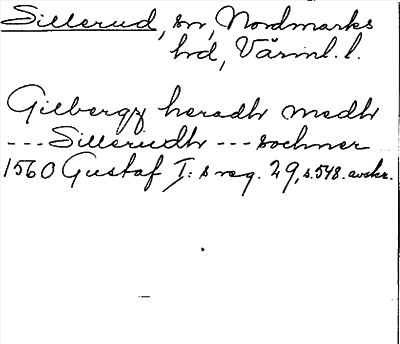 Sillerud, sn, Nordmarks
hd, Värml. l.
Gilbergz heradh medh
--- Sillerudh --- sochner
1560 Gustaf I:s reg. 29, s. 548. avskr.